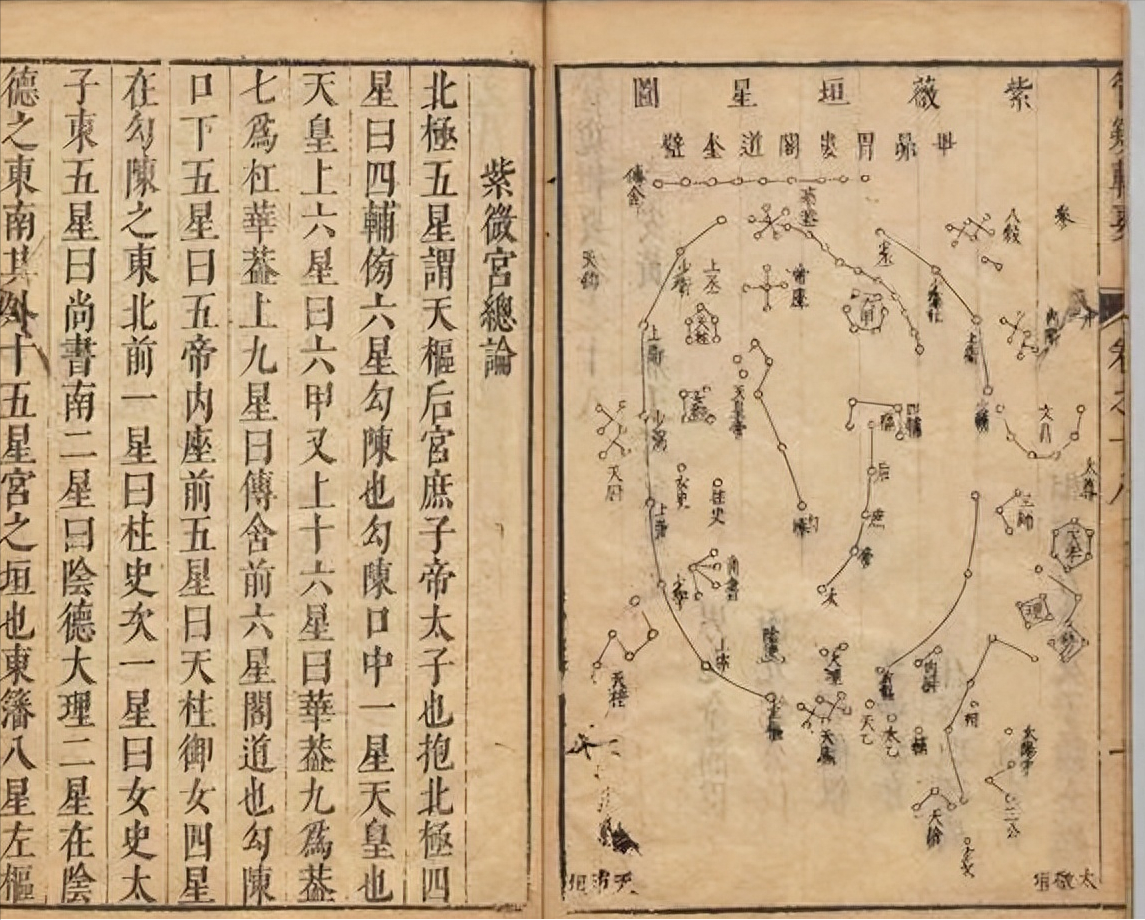 紫薇垣星圖
昴胃婁閣道奎壁
傳舍
八穀
上丞
少衛
六甲
天柱
上衛
天皇帝
四輔
后
庶
帝
太
柱史
女史
尚書
天厨
上衛
少宰
上宰
天棓
陰德
大理
天床
天乙
太乙
內厨
相
三師
太尊
天牢
理
太陽守
三公
天鎗
太微垣
天市垣
卷之十八
紫微宮總論
北極五星謂天樞后宮庶子帝太子也抱北極四
星曰四輔傍六星勾陳也勾陳口中一星天皇也
天皇上六星曰六甲又上十六星曰華葢九爲葢
七爲杠華葢上九星曰傳舍前六星閣道也勾陳
口下五星曰五帝內座前五星曰天柱御女四星
在勾陳之東北前一星曰柱史次一星曰女史太
子東五星曰尚書南二星曰陰德大理二星在陰
德之東南其外十五星宮之垣也東籓八星左樞